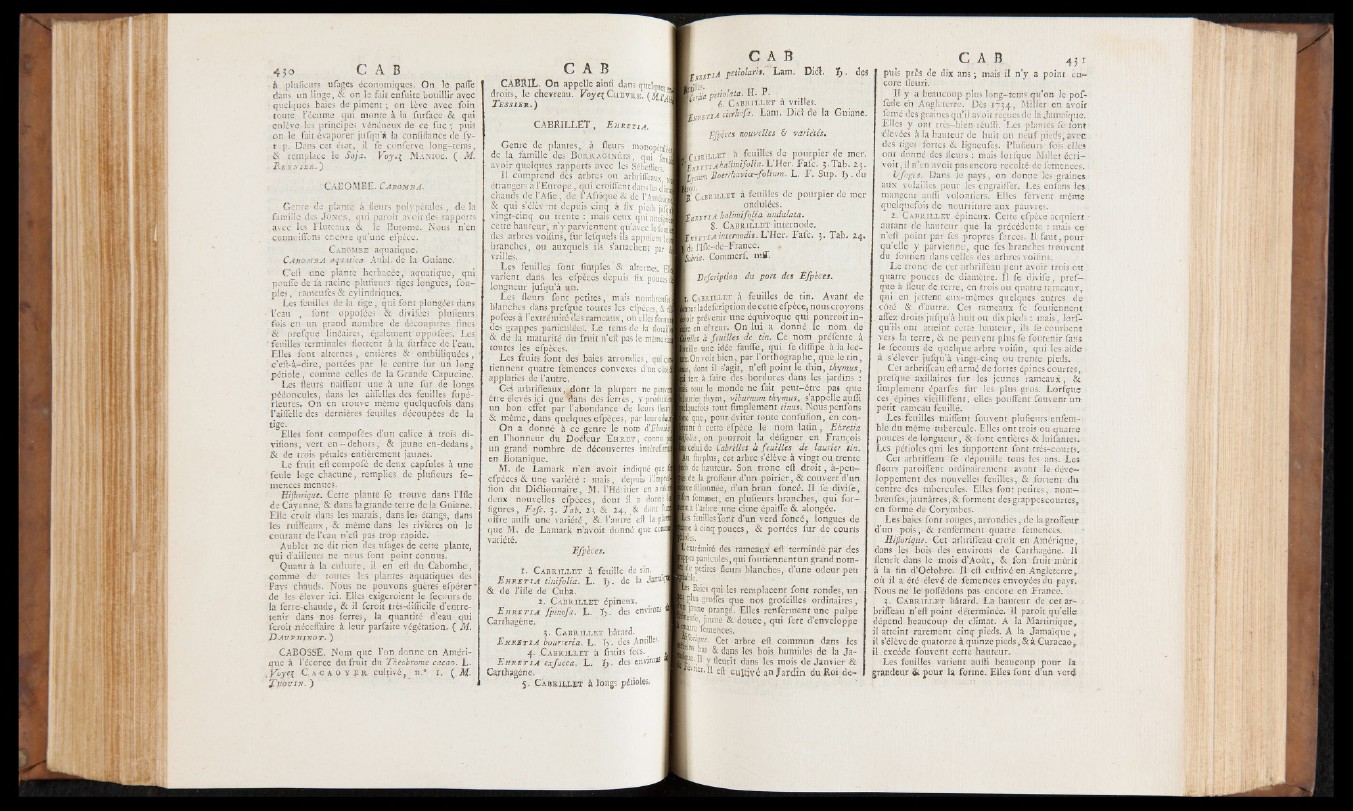 430 C A B
à plusieurs usages économiques. On le passe
dans un linge, & on le fait ensuite bouillir avec
quelques baies de piment ; on lève avec soin
toute l'écume qui monte à la surface & qui
enlève les principes vénéneux de ce suc ; puis
on le fait évaporer jusqu'à la consistance de sy-
rop. Dans cet état, il se conserve long-tems,
& remplace le Soja. Voyez MANIOC. ( M.
CABOMBE. CABOMBA.
Genre de plante à fleurs polypétales, de la
famille des JONCS, qui paroît avoir des rapports
avec les Fluteaux & le Butome. Nous n'en
connoissons encore qu'une espèce.
CABOMBE aquatique.
CABOMBA aquatica Aubl. de la Guiane.
C'est une plante herbacée, aquatique, qui
pousse de sa racine plusieurs tiges longues, sou-
ples, rameuses & cylindriques.
Les feuilles de la tige, qui sont plongées dans
l'eau , sont opposées & divisées plusieurs
fois en un grand nombre de découpures fines
& presque linéaires, également opposées. Les
feuilles terminales flottent à la surface de l'eau.
Elles sont alternes, entières & ombiliquées,
c'est-à-dire, portées par le centre sur un long
pétiole, comme celles de la Grande Capucine.
Les fleurs naissent une à une sur de longs
pédoncules, dans les aisselles des feuilles supé-
rieures. On en trouve même quelquefois dans
l'aisselle des dernières feuilles découpées de la
tige.
Elles sont composées d'un calice à trois di-
visions, vert en-dehors, & jaune en-dedans,
& de trois pétales entièrement jaunes.
Le fruit est composé de deux capsules à une
seule loge chacune, remplies de plusieurs se-
mences menues.
Historique. Cette plante se trouve dans l'Isle
de Cayenne, & dans la grande terre de la Guiane.
Elle croît dans les marais, dans les étangs, dans
les ruisseaux, & même dans les rivières où le
courant de l'eau n'est pas trop rapide.
Aublet ne dit rien des usages de cette plante,
qui d'ailleurs ne nous sont point connus.
Quant à la culture, il en est du Cabombe,
comme de toutes les plantes aquatiques des
Pays chauds. Nous ne pouvons guères espérer
de les élever ici. Elles exigeroient le secours de
la serre-chaude, & il seroit très-difficile d'entre-
tenir dans nos serres, la quantité d'eau qui
seroit nécessaire à leur parfaite végétation. ( M.
DAUPHINOT. )
CABOSSE. Nom que l'on donne en Améri-
que à l'écorce du fruit du Theobrome cacao. L.
Voyez CACAOYER cultivé, n.° 1. ( M.
THOUIN. )
C A B
CABRIL. On appelle ainsi dans quelques en-
droits, le chevreau. Voyez CHEVRE.
TESSIER. )
CABRILLET, EHRETIA.
Genre de plantes, à fleurs monopétales,
de la famille des BORRAGINÉES, qui
avoir quelques rapports avec les Sébestiers.
Il comprend des arbres ou arbrisseaux,
étrangers à l'Europe, qui croissent dans les
chauds de l'Asie, de l'Afrique & de l'Amérique
& qui s'élèvent depuis cinq à six pieds
vingt-cinq ou trente : mais ceux qui
cette hauteur, n'y parviennent qu'avec le
des arbres voisins, sur lesquels ils appuient
branches, ou auxquels ils s'attachent par
vrilles.
Les feuilles sont simples & alternes.
varient dans les espèces depuis six pouces
longueur jusqu'à un.
Les fleurs sont petites, mais nombreuses,
blanches dans presque toutes les espèces, &
posées à l'extrémité des rameaux, où elles
des grappes paniculées. Le tems de la
& de la maturité du fruit n'est pas le même
toutes les espèces.
Les fruits sont des baies arrondies, qui
tiennent quatre semences convexes d'un côté
applaties de l'autre.
Ces arbrisseaux, dont la plupart ne
être élevés ici que dans des serres, y
un bon effet par l'abondance de leurs
& même, dans quelques espèces, par leur
On a donné à ce genre le nom
en l'honneur du Docteur EHRET, connu
un grand nombre de découvertes
en Botanique.
M. de Lamark n'en avoit indiqué que
espèces & une variété : mais, depuis
sion du Dictionnaire, M. l'Héritier en a
deux nouvelles espèces, dont il a
figures, Fasc. 3. Tab. 23 & 24, & dont
offre aussi une variété, & l'autre est la
que M. de Lamark n'avoit donné que
variété.
Espèces.
1. CABRILLET à feuille de tin.
EHRETIA tinifolia. L. ♄. de la Jamaïque
& de l'isle de Cuba.
2. CABRILLET épineux.
EHRETIA spinosa. L. ♄. des environs
Carthagène.
3. CABRILLET bâtard.
EHRETIA bourreria. L. ♄. des Antilles.
4. CABRILLET à fruits secs.
EHRETIA exsucca. L. ♄. des environs
Carthagène.
5. CABRILLET à longs pétioles.
C A B
petiolaris. Lam. Dict. ♄. des
petiolata. H. P.
6. CABRILLET à vrilles.
cirrhosa. Lam. Dict de la Guiane.
Espèces nouvelles & variétés.
CABRILLET à feuilles de pourpier de mer.
halimifolia. L'Her. Fasc. 3. Tab. 23.
Boerrhaviæ-folium. L. F. Sup. ♄. du
CABRILLET à feuilles de pourpier de mer
ondulées.
EHRETIA halimifolia undulata.
8. CABRILLET internode.
internodis. L'Her. Fasc. 3. Tab. 24.
de l'Isle-de-France.
Commers. mss.
Description du port des Espèces.
1. CABRILLET à feuilles de tin. Avant de
la description de cette espèce, nous croyons
prévenir une équivoque qui pourroit in-
en erreur. On lui a donné le nom de
à feuilles de tin. Ce nom présente à
une idée fausse, qui se dissipe à la lec-
On voit bien, par l'orthographe, que le tin,
dont il s'agit, n'est point le thin, thymus,
à faire des bordures dans les jardins :
tout le monde ne sait peut-être pas que
thym, viburnum thymus, s'appelle aussi
tout simplement tinus. Nous pensons
que, pour éviter toute confusion, en con-
à cette espèce le nom latin, Ehretia
on pourroit la désigner en François
celui de Cabrillet à feuilles de laurier tin.
surplus, cet arbre s'élève à vingt ou trente
de hauteur. Son tronc est droit, à-peu-
de la grosseur d'un poirier, & couvert d'un
sillonnée, d'un brun foncé. Il se divise,
sommet, en plusieurs branches, qui for-
à l'arbre une cime épaisse & alongée.
feuilles sont d'un verd foncé, longues de
à cinq pouces, & portées sur de courts
L'extrémité des rameaux est terminée par des
paniculées, qui soutiennent un grand nom-
de petites fleurs blanches, d'une odeur peu
baies qui les remplacent sont rondes, un
plus grosses que nos groseilles ordinaires,
jaune orangé. Elles renferment une pulpe
jaune & douce, qui sert d'enveloppe
semences.
Cet arbre est commun dans les
bas & dans les bois humides de la Ja-
Il y fleurit dans les mois de Janvier &
Il est cultivé au Jardin du Roi de-
C A B 431
puis près de dix ans ; mais il n'y a point en-
core fleuri.
Il y a beaucoup plus long-tems qu'on le pos-
sède en Angleterre. Dès 1734, Miller en avoit
semé des graines qu'il avoit reçues de la Jamaïque.
Elles y ont très-bien réussi. Les plantes se sont
élevées à la hauteur de huit ou neuf pieds, avec
des tiges fortes & ligneuses. Plusieurs fois elles
ont donné des fleurs : mais lorsque Millet écri-
voit, il n'en avoit pas encore récolté de semences.
Usages. Dans le pays, on donne les graines
aux volailles pour les engraisser. Les enfans les
mangent aussi volontiers. Elles servent même
quelquefois de nourriture aux pauvres.
2. CABRILLET épineux. Cette espèce acquiert
autant de hauteur que la précédente : mais ce
n'est point par ses propres forces. Il faut, pour
qu'elle y parvienne, que ses branches trouvent
du soutien dans celles des arbres voisins.
Le tronc de cet arbrisseau peut avoir trois ou
quatre pouces de diamètre. Il se divise, pres-
que à fleur de terre, en trois ou quatre rameaux,
qui en jettent eux-mêmes quelques autres de
côté & d'autre. Ces rameaux se soutiennent
assez droits jusqu'à huit ou dix pieds : mais, lors-
qu'ils ont atteint cette hauteur, ils se courbent
vers la terre, & ne peuvent plus se soutenir sans
le secours de quelque arbre voisin, qui les aide
à s'élever jusqu'à vingt-cinq ou trente pieds.
Cet arbrisseau est armé de fortes épines courtes,
presque axillaires sur les jeunes rameaux, &
simplement éparses sur les plus gros. Lorsque
ces épines vieillissent, elles poussent souvent un
petit rameau feuillé.
Les feuilles naissent souvent plusieurs ensem-
ble du même tubercule. Elles ont trois ou quatre
pouces de longueur, & sont entières & luisantes.
Les pétioles qui les supportent sont très-courts.
Cet arbrisseau se dépouille tous les ans. Les
fleurs paroissent ordinairement avant le déve-
loppement des nouvelles feuilles, & sortent du
centre des tubercules. Elles sont petites, nom-
breuses, jaunâtres, & forment des grappes courtes,
en forme de Corymbes.
Les baies sont rouges, arrondies, de la grosseur
d'un pois, & renferment quatre semences.
Historique. Cet arbrisseau croît en Amérique,
dans les bois des environs de Carthagène. Il
fleurit dans le mois d'Août, & son fruit mûrit
à la fin d'Octobre. Il est cultivé en Angleterre,
où il a été élevé de semences envoyées du pays.
Nous ne le possédons pas encore en France.
3. CABRILLET bâtard. La hauteur de cet ar-
brisseau n'est point déterminée. Il paroît qu'elle
dépend beaucoup du climat. A la Martinique,
il atteint rarement cinq pieds. A la Jamaïque,
il s'élève de quatorze à quinze pieds, & à Curacao,
il excède souvent cette hauteur.
Les feuilles varient aussi beaucoup pour la
grandeur & pour la forme. Elles sont d'un verd